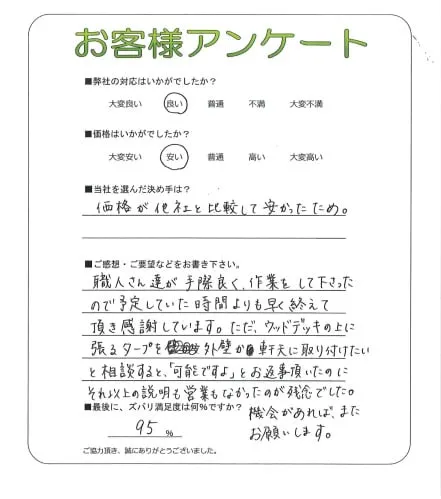 お客様アンケート
■弊社の対応はいかがでしたか？
大変良い 良い 普通 不満 大変不満
■価格はいかがでしたか？
大変安い 安い 普通 高い 大変高い
■当社を選んだ決め手は？
価格が他社と比較して安かったため。
■ご感想・ご要望などをお書き下さい。
職人さん達が手際良く、作業をして下さった
ので予定していた時間よりも早く終えて
頂き感謝しています。ただ、ウッドデッキの上に
張るタープを外壁か軒天に取り付けたい
と相談すると、「可能ですよ」とお返事頂いたのに
それ以上の説明も営業もなかったのが残念でした。
■最後に、ズバリ満足度は何%ですか？
95 %
機会があれば、また
お願いします。
ご協力頂き、誠にありがとうございました。